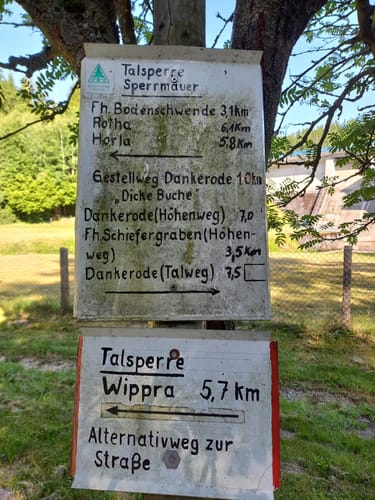 Talsperre
Sperrmauer
Fh. Bodenschwende 3,1km
Rotha 6,1km
Horla 5,8km
Gestellweg Dankerode 10km
„Dicke Buche"
Dankerode (Höhenweg) 7,0
Fh. Schiefergraben (Höhen-
weg) 3,5km
Dankerode (Talweg) 7,5
Talsperre
Wippra 5,7 km
Alternativweg zur
Straße